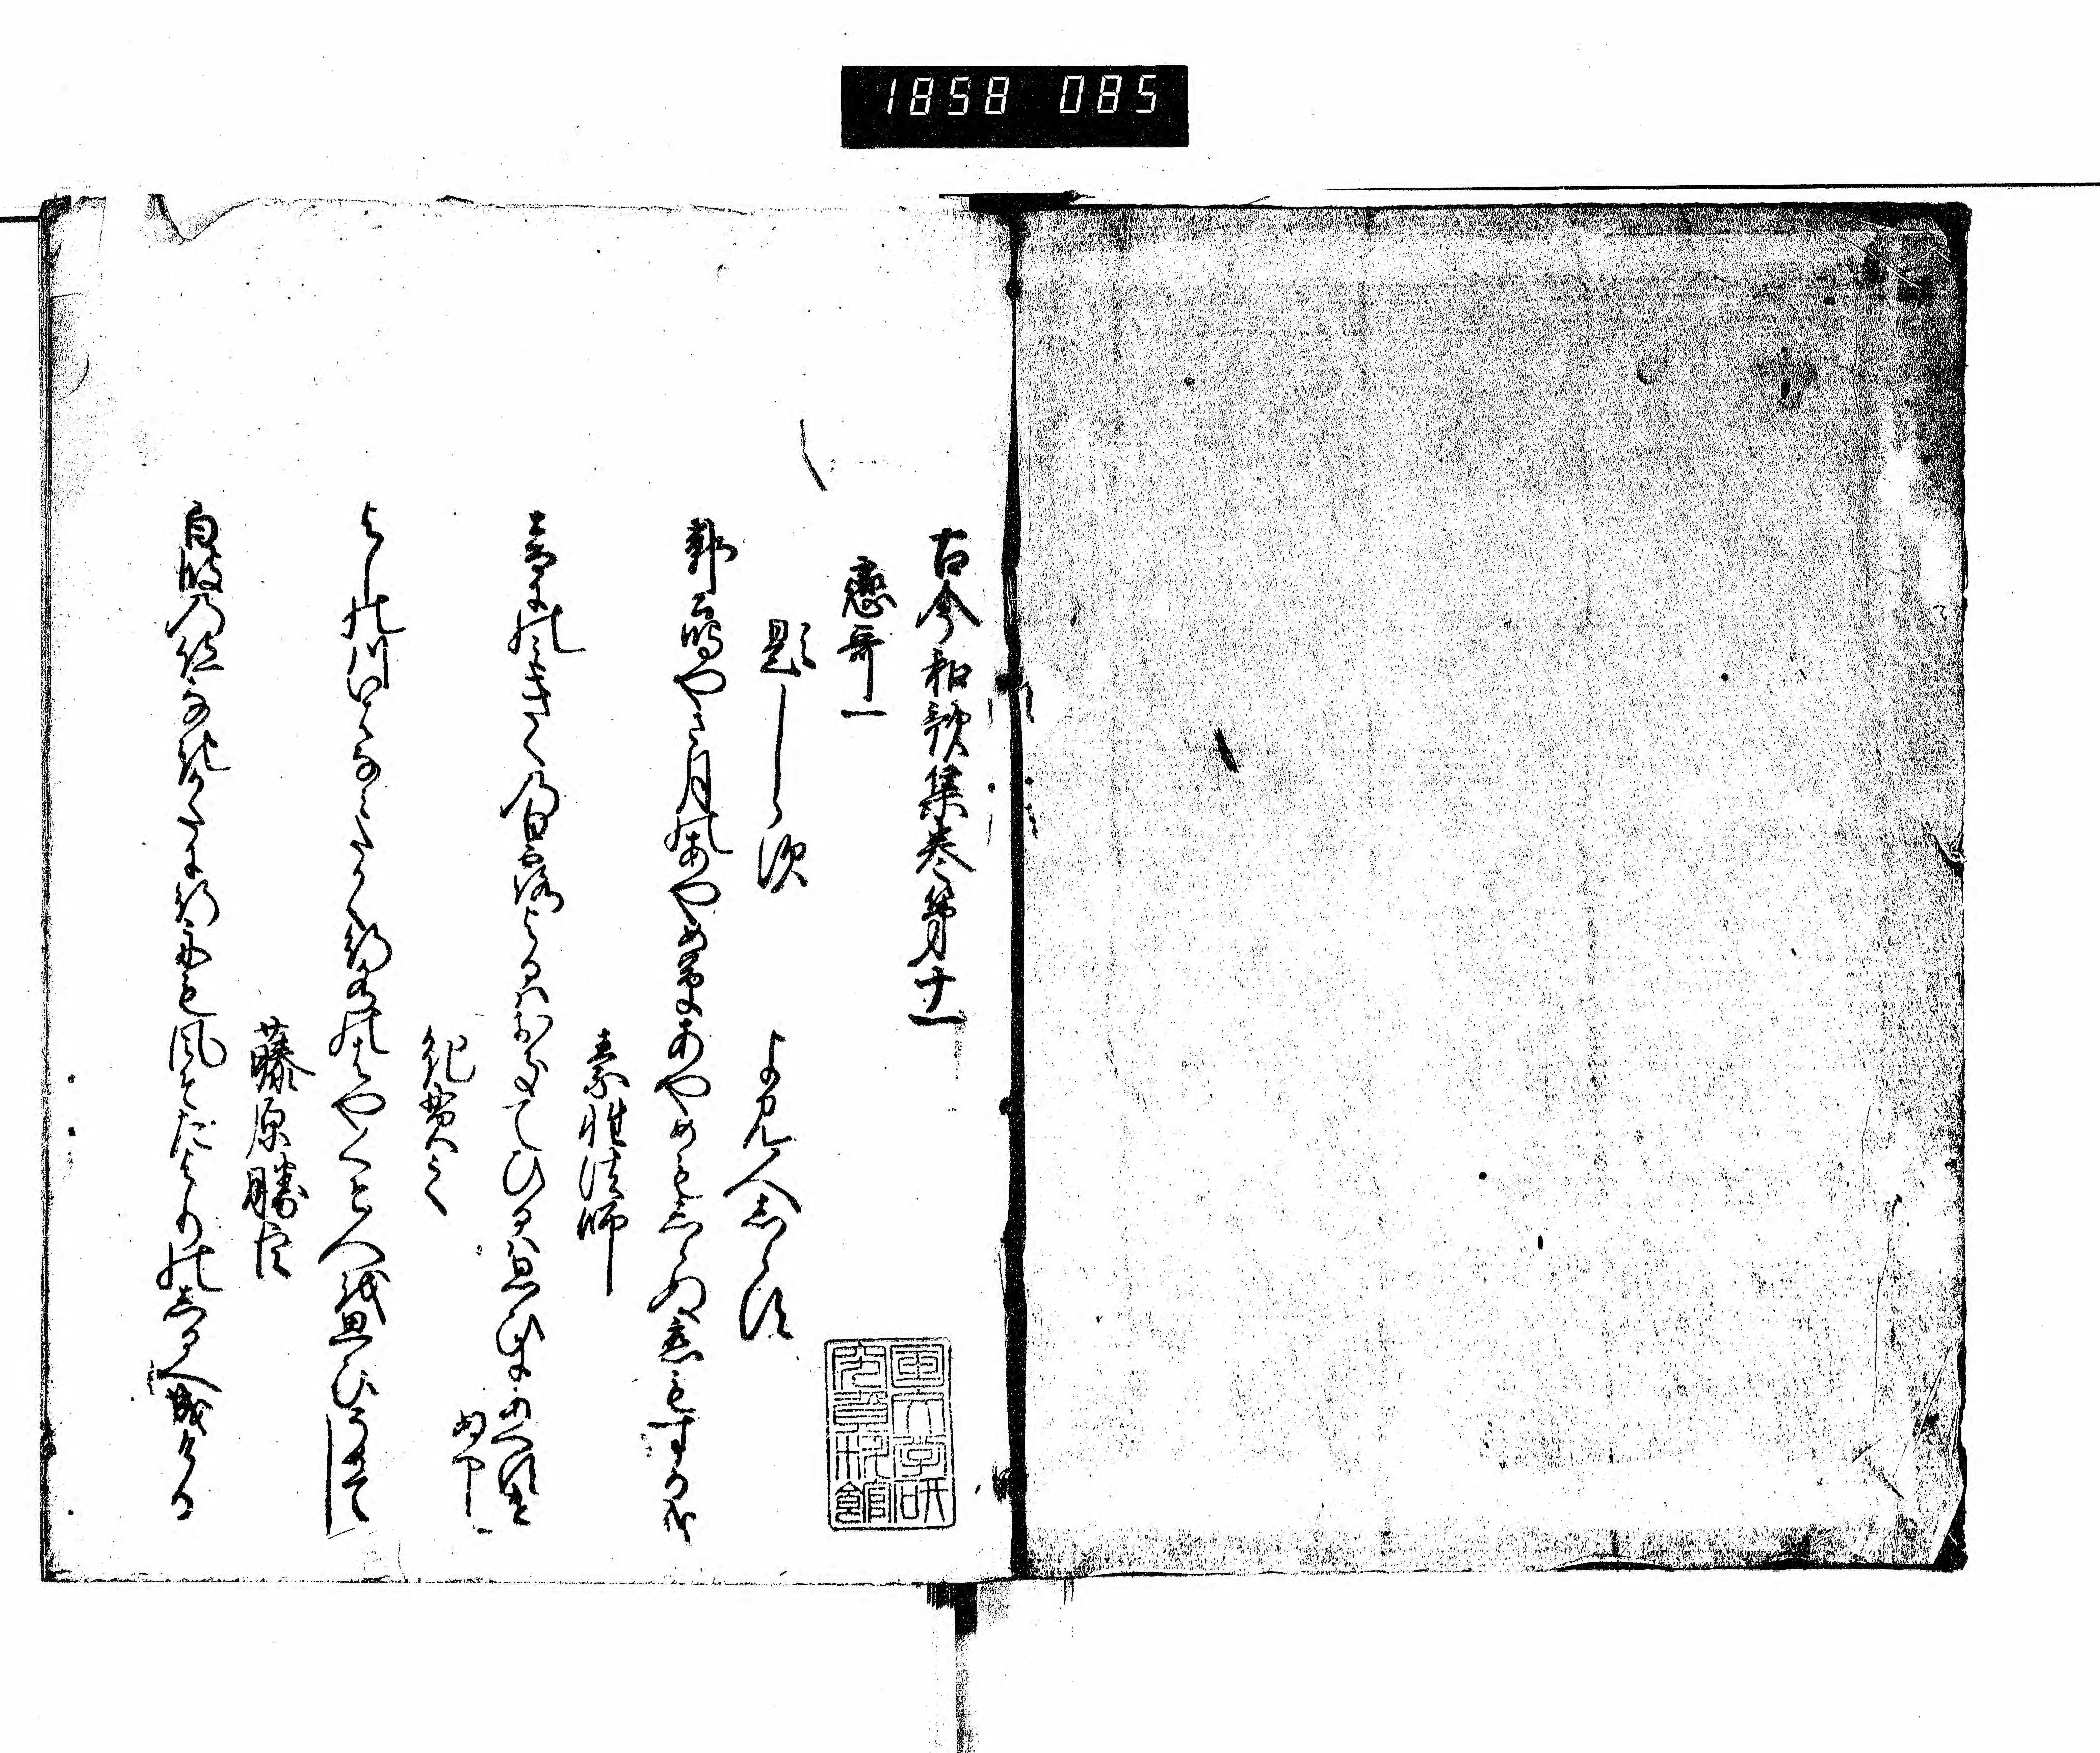 1858 085
古今和歌集巻第十一
戀哥一
題しら須
よみ人志らす
郭公鳴やさ月のあやめ草あやめも志らぬ恋もするかな
素性法師
音にのみきくの白露よるハおきてひるハ思ひにあへすけ
ぬへし
紀貫之
よしの川いはなみたかく行水のはやくそ人を思ひそめてし
藤原勝臣
白波のあとなきかたに行舟も風そたよりのしるへ成ける
国文学研
究資料館